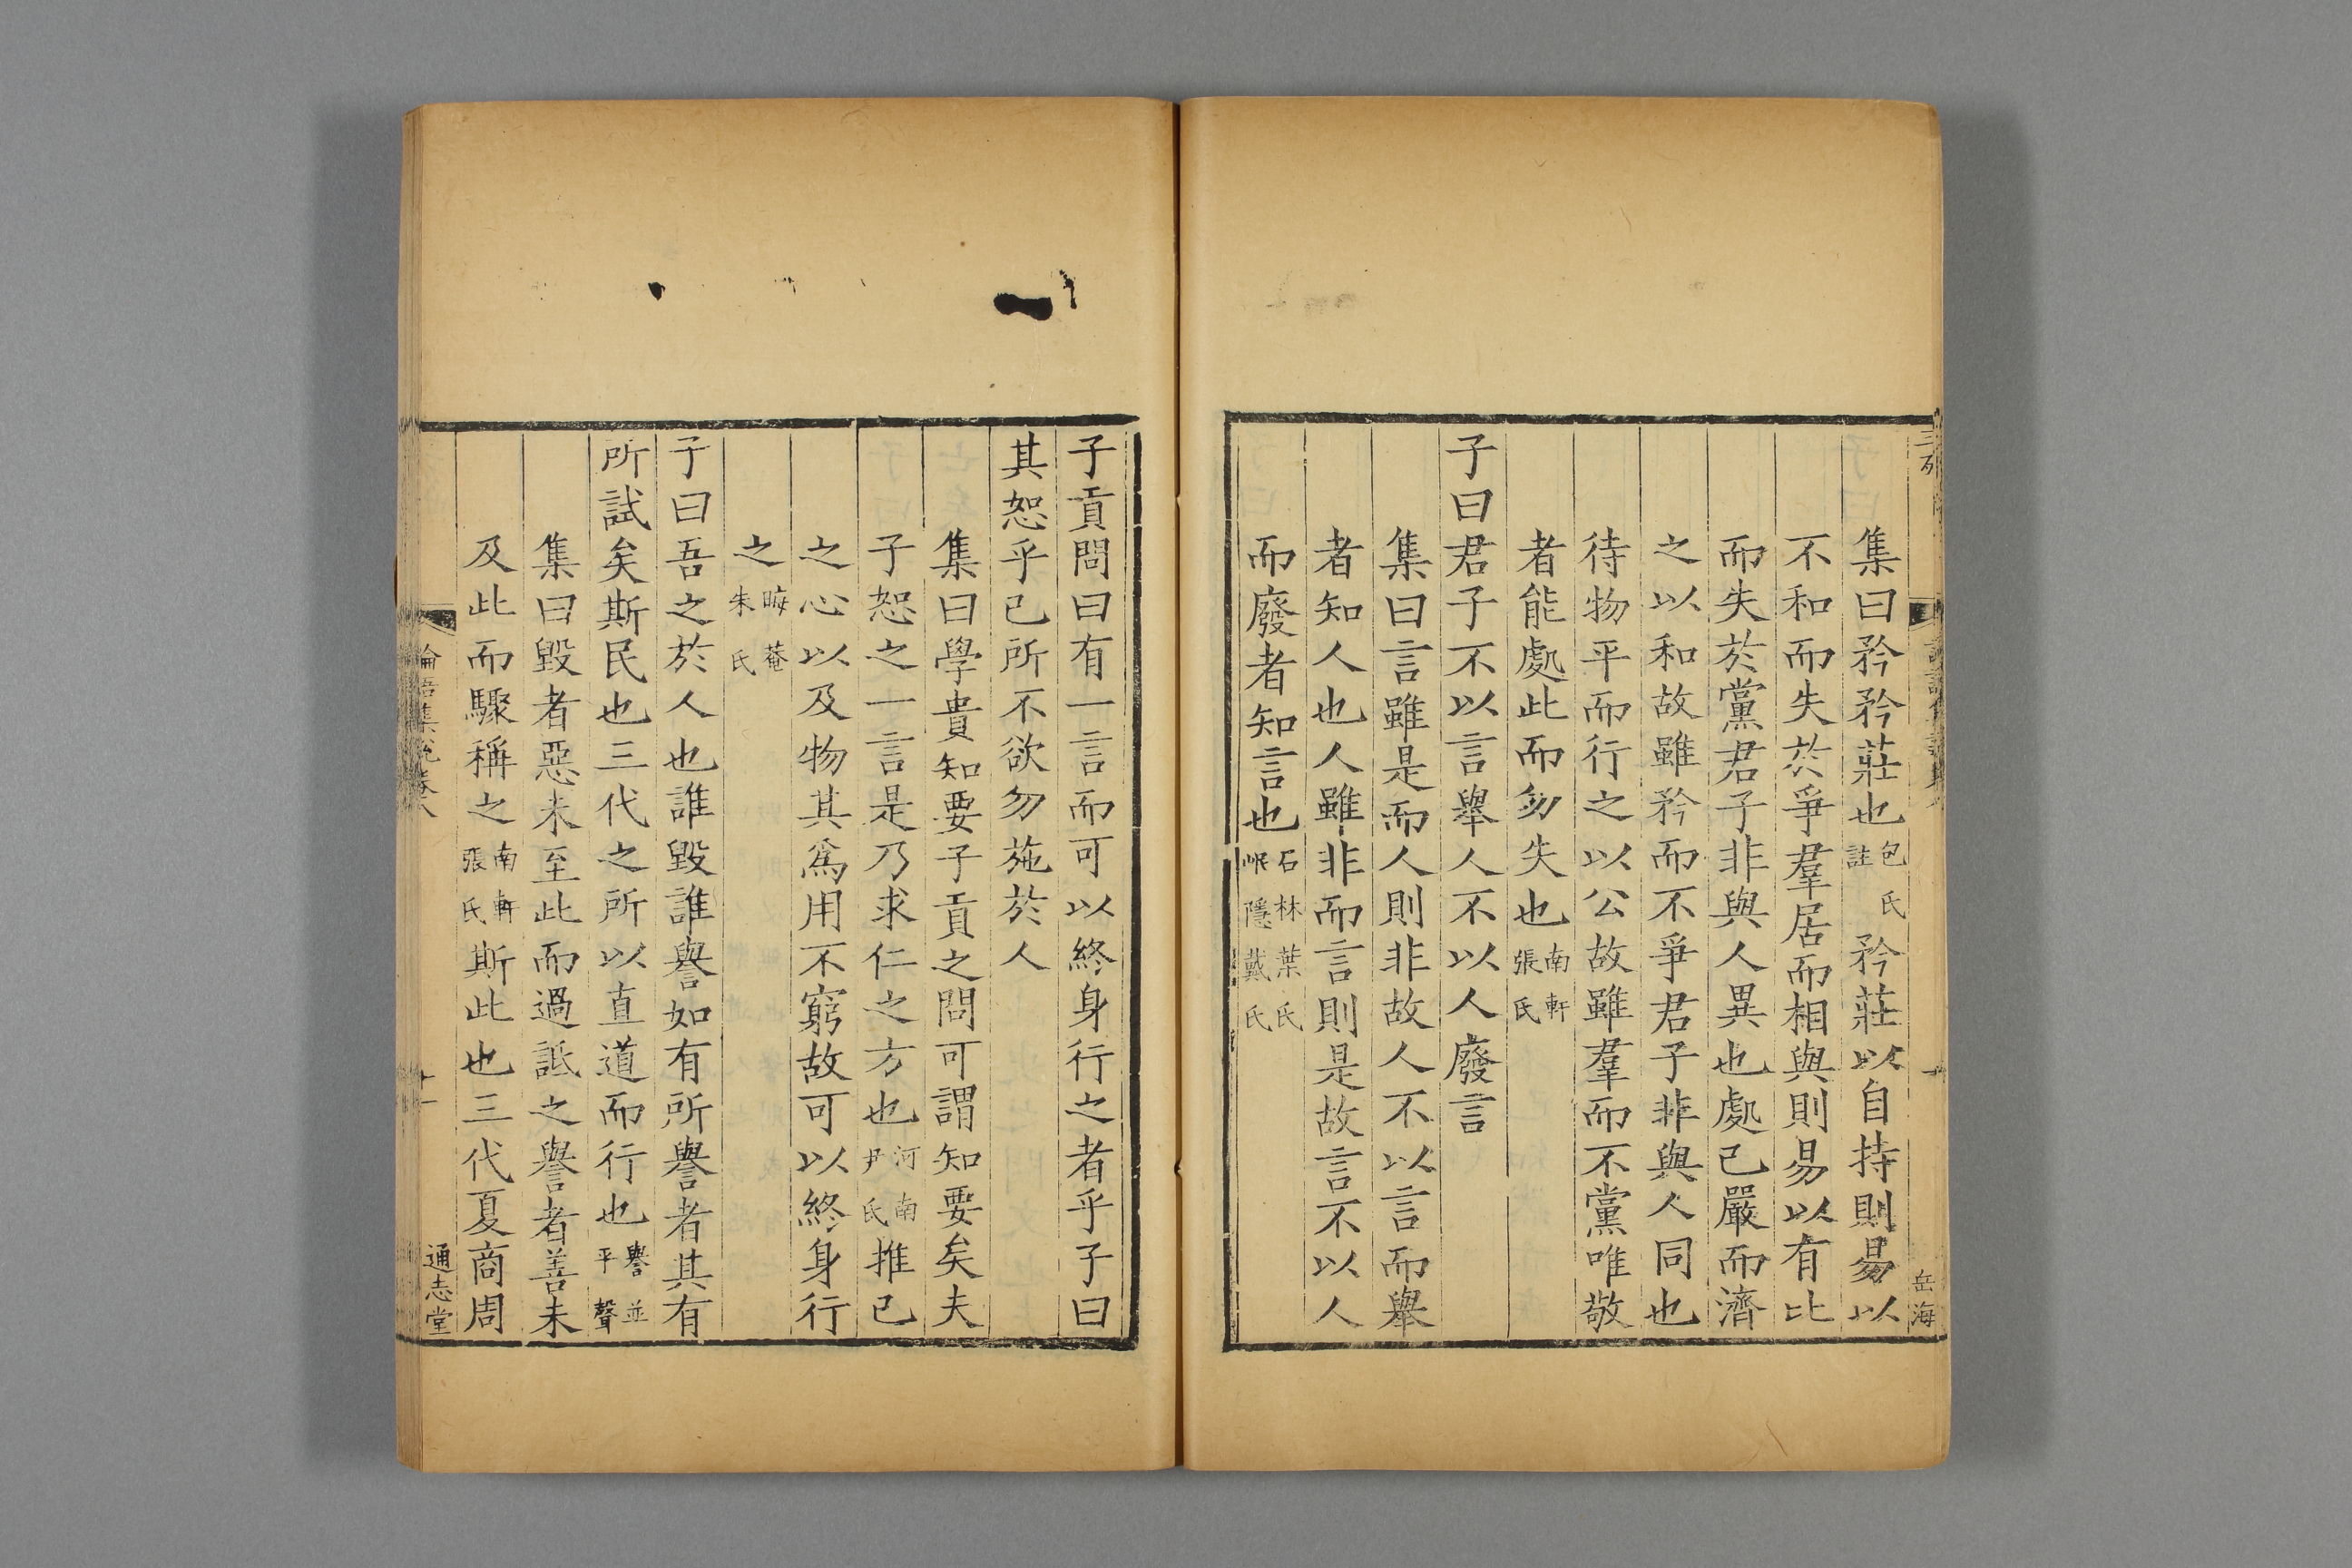 集曰矜矜莊也包氏註矜莊以自持則易以
不和而失於爭羣居而相與則易以有比
而失於黨君子非與人異也處己嚴而濟
之以和故雖矜而不爭君子非與人同也
待物平而行之以公故雖羣而不黨唯敬
者能處此而勿失也南軒張氏
子曰君子不以言舉人不以人廢言
集曰言雖是而人則非故人不以言而舉
者知人也人雖非而言則是故言不以人
而廢者知言也石林葉氏岷隱戴氏
岳海
子貢問曰有一言而可以終身行之者乎子曰
其恕乎己所不欲勿施於人
集曰學貴知要子貢之問可謂知要矣夫
子恕之一言是乃求仁之方也河南尹氏推己
之心以及物其為用不窮故可以終身行
之晦菴朱氏
子曰吾之於人也誰毀誰譽如有所譽者其有
所試矣斯民也三代之所以直道而行也譽並平聲
集曰毀者惡未至此而過詆之譽者善未
及此而驟稱之南軒張氏斯此也三代夏商周
論語集說卷八
十一
通志堂